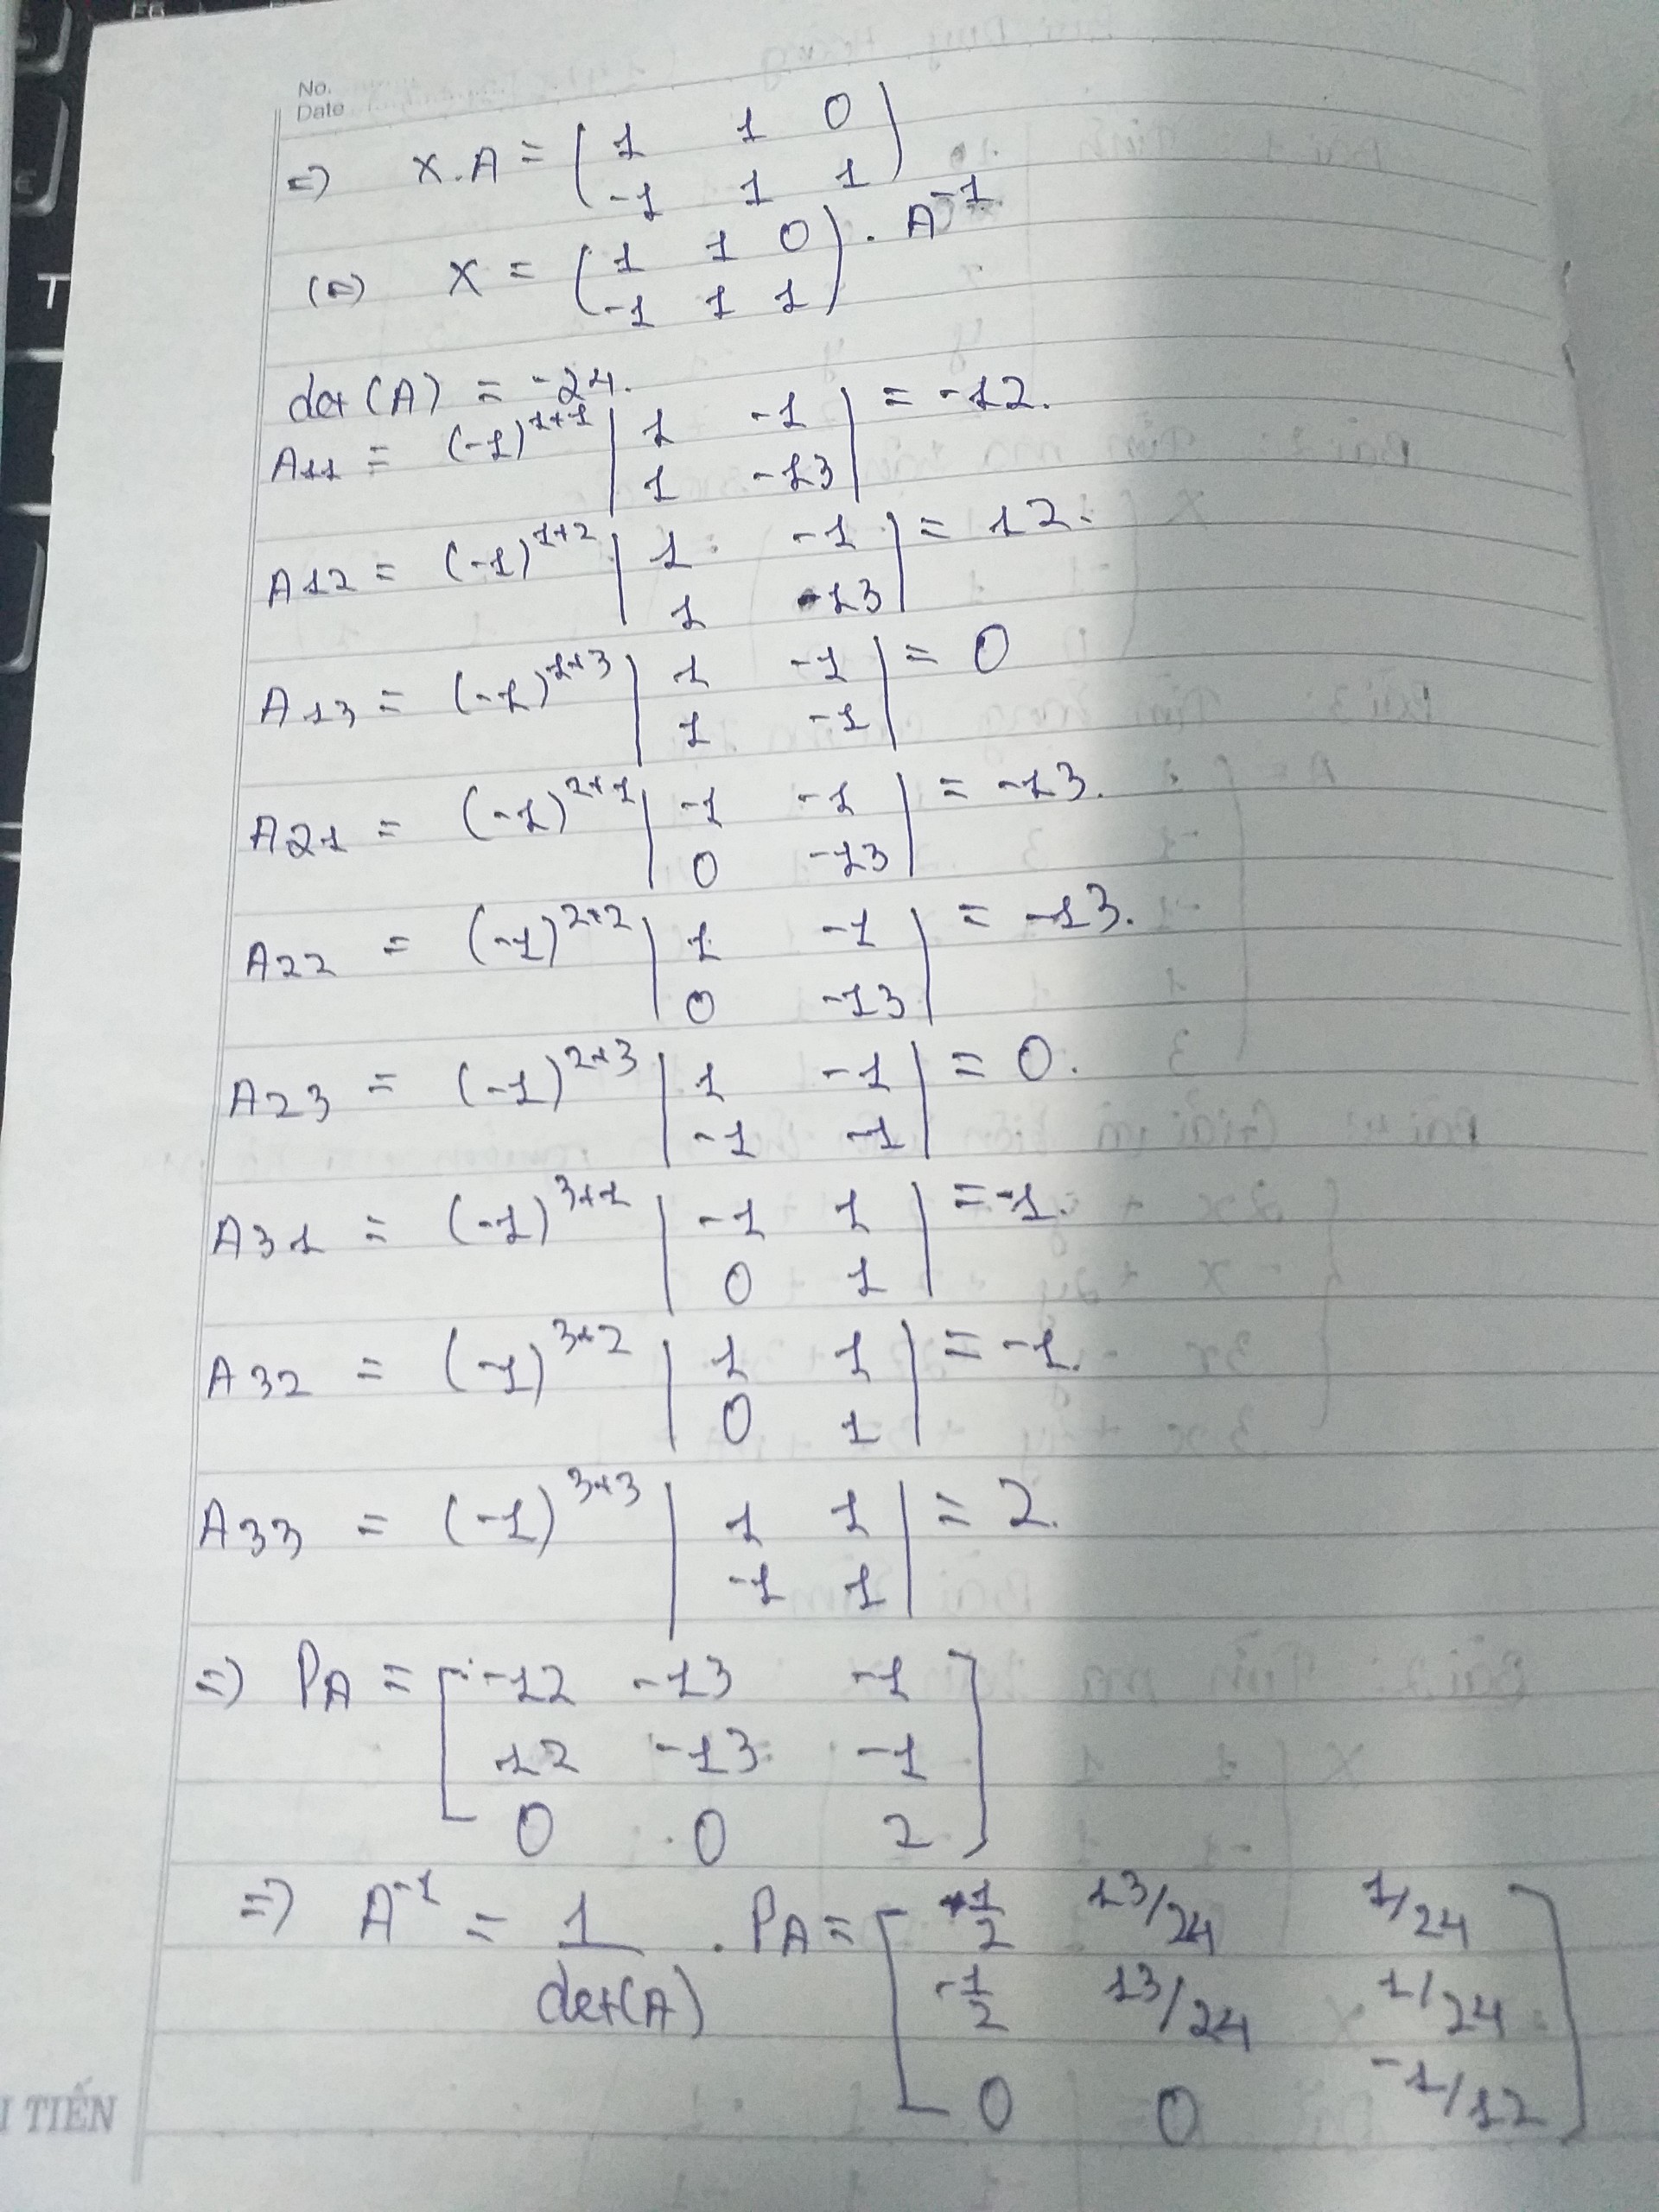 No.
Date
=> X.A = ( 1 1 0
-1 1 1 )
(=) X = ( 1 1 0
-1 1 1 ) . A^-1
det(A) = -24.
A11 = (-1)^1+1 | 1 -1
1 -13 | = -12.
A12 = (-1)^1+2 | 1 -1
1 -13 | = 12.
A13 = (-1)^1+3 | 1 -1
1 -1 | = 0
A21 = (-1)^2+1 | -1 -1
0 -13 | = -13.
A22 = (-1)^2+2 | 1 -1
0 -13 | = -13.
A23 = (-1)^2+3 | 1 -1
-1 -1 | = 0.
A31 = (-1)^3+1 | -1 1
0 1 | = -1.
A32 = (-1)^3+2 | 1 1
0 1 | = -1.
A33 = (-1)^3+3 | 1 1
-1 1 | = 2.
=> PA = [ -12 -13 -1
12 -13 -1
0 0 2 ]
=> A^-1 = 1/det(A) . PA = [ 1/2 13/24 1/24
-1/2 13/24 1/24
0 0 -1/12 ]
TIẾN